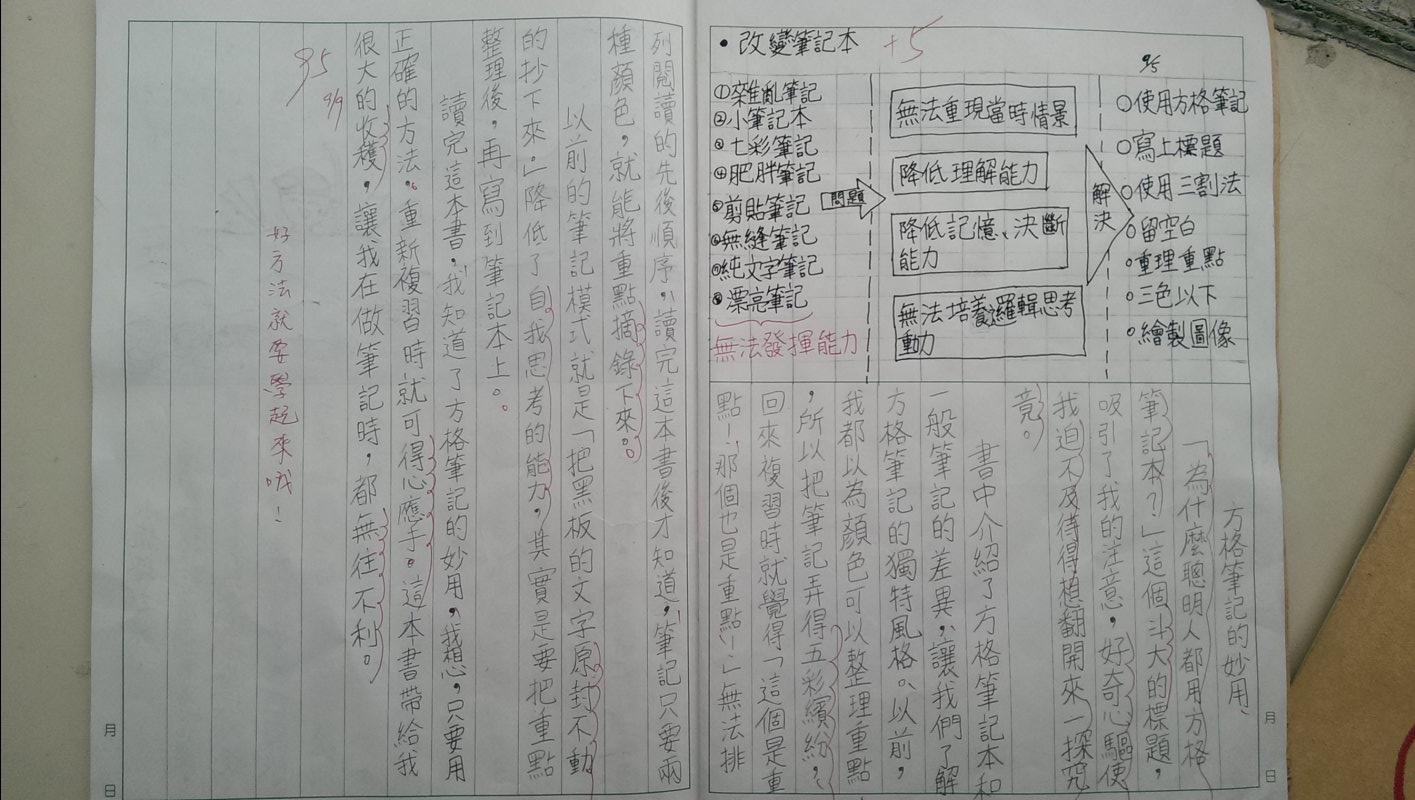 •改變筆記本
+5
9/5
①雜亂筆記
②小筆記本
③七彩筆記
④肥胖筆記
⑤剪貼筆記
⑥無縫筆記
⑦純文字筆記
⑧漂亮筆記
無法發揮能力
問題
無法重現當時情景
降低理解能力
降低記憶、決斷
能力
無法培養邏輯思考
動力
解決
○使用方格筆記
○寫上標題
○使用三割法
○留空白
○重理重點
○三色以下
○繪製圖像
方格筆記的妙用、
「為什麼聰明人都用方格
筆記本?」這個斗大的標題,
吸引了我的注意,好奇心驅使
我迫不及待得想翻開來一探究
竟。
書中介紹了方格筆記本和
一般筆記的差異,讓我們了解
方格筆記的獨特風格。以前,
我都以為顏色可以整理重點
,所以把筆記弄得五彩繽紛,
回來複習時就覺得「這個是重
點!那個也是重點!」無法排
列閱讀的先後順序,讀完這本書後才知道,筆記只要兩
種顏色,就能將重點摘錄下來。
以前的筆記模式就是「把黑板的文字原封不動
的抄下來」降低了自我思考的能力,其實是要把重點
整理後,再寫到筆記本上。
讀完這本書,我知道了方格筆記的妙用,我想,只要用
正確的方法,重新複習時就可得心應手。這本書帶給我
很大的收穫,讓我在做筆記時,都無往不利。
95
9/9
好方法就要學起來哦!
月
日
月
日